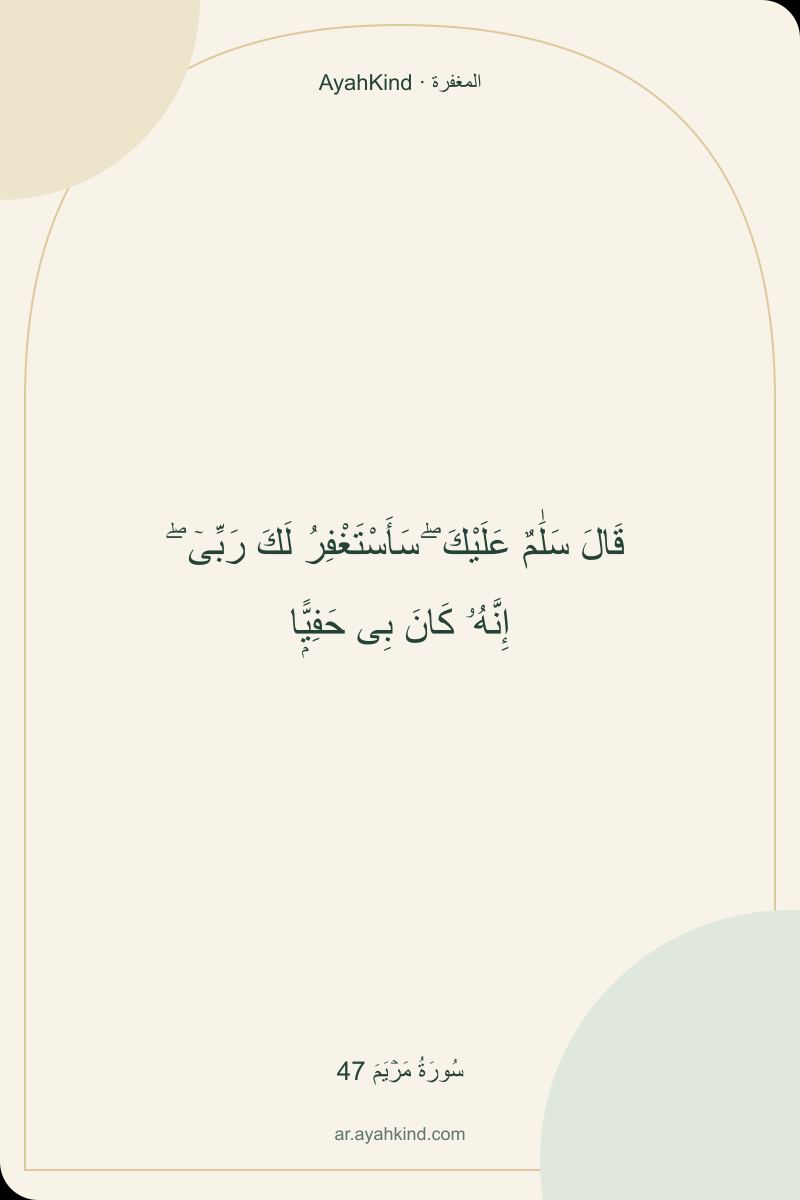 AyahKind · المغفرة
قَالَ سَلَٰمٌ عَلَيْكَ ۖ سَأَسْتَغْفِرُ لَكَ رَبِّىٓ ۖ
إِنَّهُۥ كَانَ بِى حَفِيًّۭا
سُورَةُ مَرۡيَمَ 47
ar.ayahkind.com